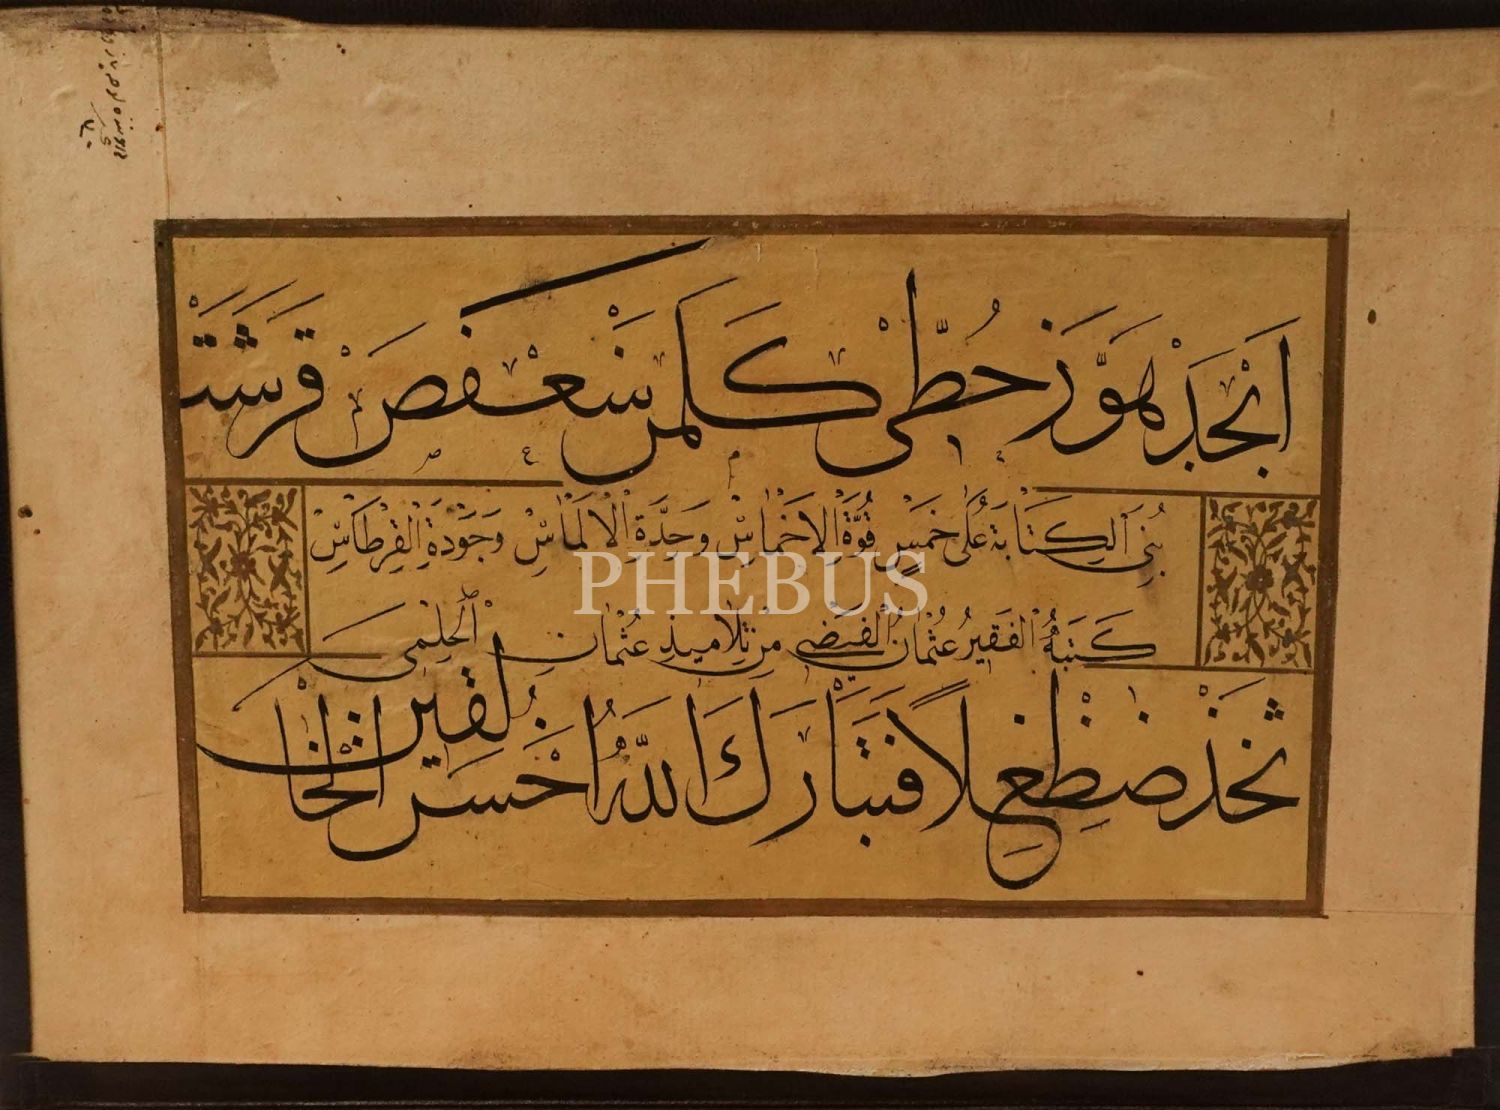 اَبْجَدْ هَوَّزْ حُطِّى كَلَمَنْ سَعْفَصْ قَرَشَتْ
بُنِىَ الْكِتَابَة عَلٰى خَمْسٍ قُوَّةِ الْاَخْمَاسْ وَحِدَّةِ الْاَلْمَاسْ وَجَوْدَةِ الْقِرْطَاسْ
PHEBUS
كَتَبَهُ الْفَقِيرُ عُثْمَانُ الْفَيْضِى مِنْ تَلَامِيذِ عُثْمَانِ الْحِلْمِى
ثَخَذْ ضَظِغٍ لاً فَتَبَارَكَ اللّٰهُ اَحْسَنُ الْخَالِقِينَ